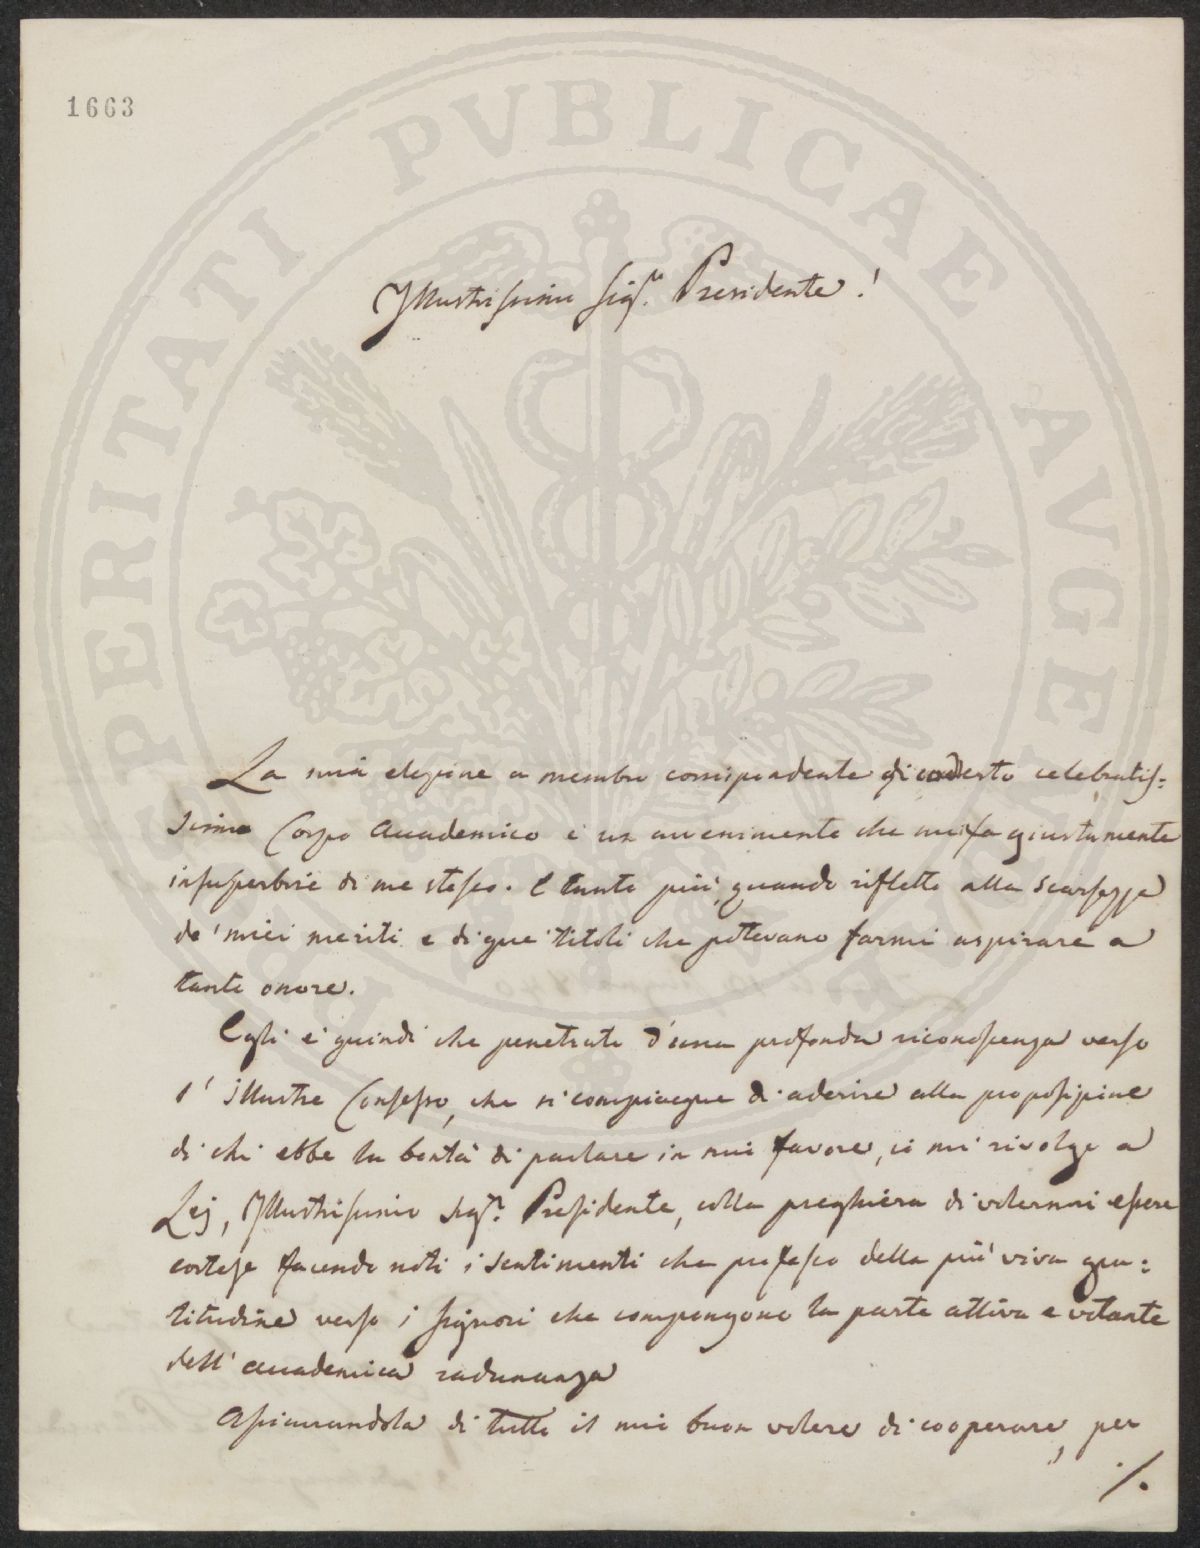 1663
PROSPERITATI PVBLICAE AVGENDAE
Illustrissimo Sig.r Presidente!
La mia elezione a membro corrispondente di codesto celebratis=
simo Corpo Accademico è un avvenimento che mi fa giustamente
insuperbire di me stesso. E tanto più, quando rifletto alla scarsezza
de' miei meriti e di que' titoli che potevano farmi aspirare a
tanto onore.
Egli è quindi che penetrato d'una profonda riconoscenza verso
l' illustre Consesso, che si compiacque di aderire alla proposizione
di chi ebbe la bontà di parlare in mio favore, io mi rivolgo a
Lei, Illustrissimo Sig.r Presidente, colla preghiera di volermi essere
cortese facendo noti i sentimenti che professo della più viva gra=
titudine verso i Signori che compongono la parte attiva e votante
dell' accademica radunanza
Assicurandola di tutto il mio buon volere di cooperare, per
./.